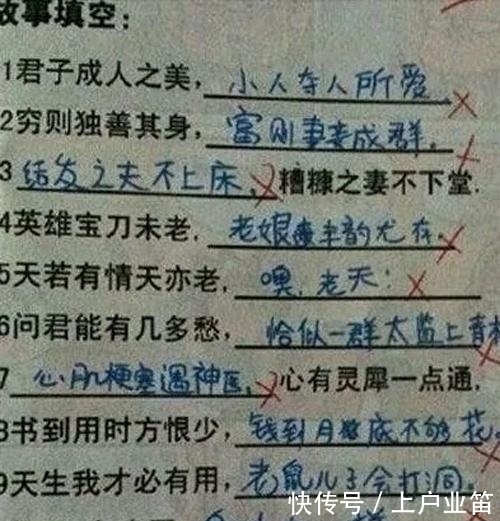 故事填空:
1君子成人之美，小人夺人所爱。
2穷则独善其身，富则妻妾成群。
3结发之夫不上床，糟糠之妻不下堂.
4英雄宝刀未老，老娘丰韵尤存.
5天若有情天亦老，噢，老天:
6问君能有几多愁，恰似一群太监上青
7心肌梗塞遇神医，心有灵犀一点通，
8书到用时方恨少，钱到月底不够花。
9天生我才必有用，老鼠儿子会打洞。
快传号／上户业笛